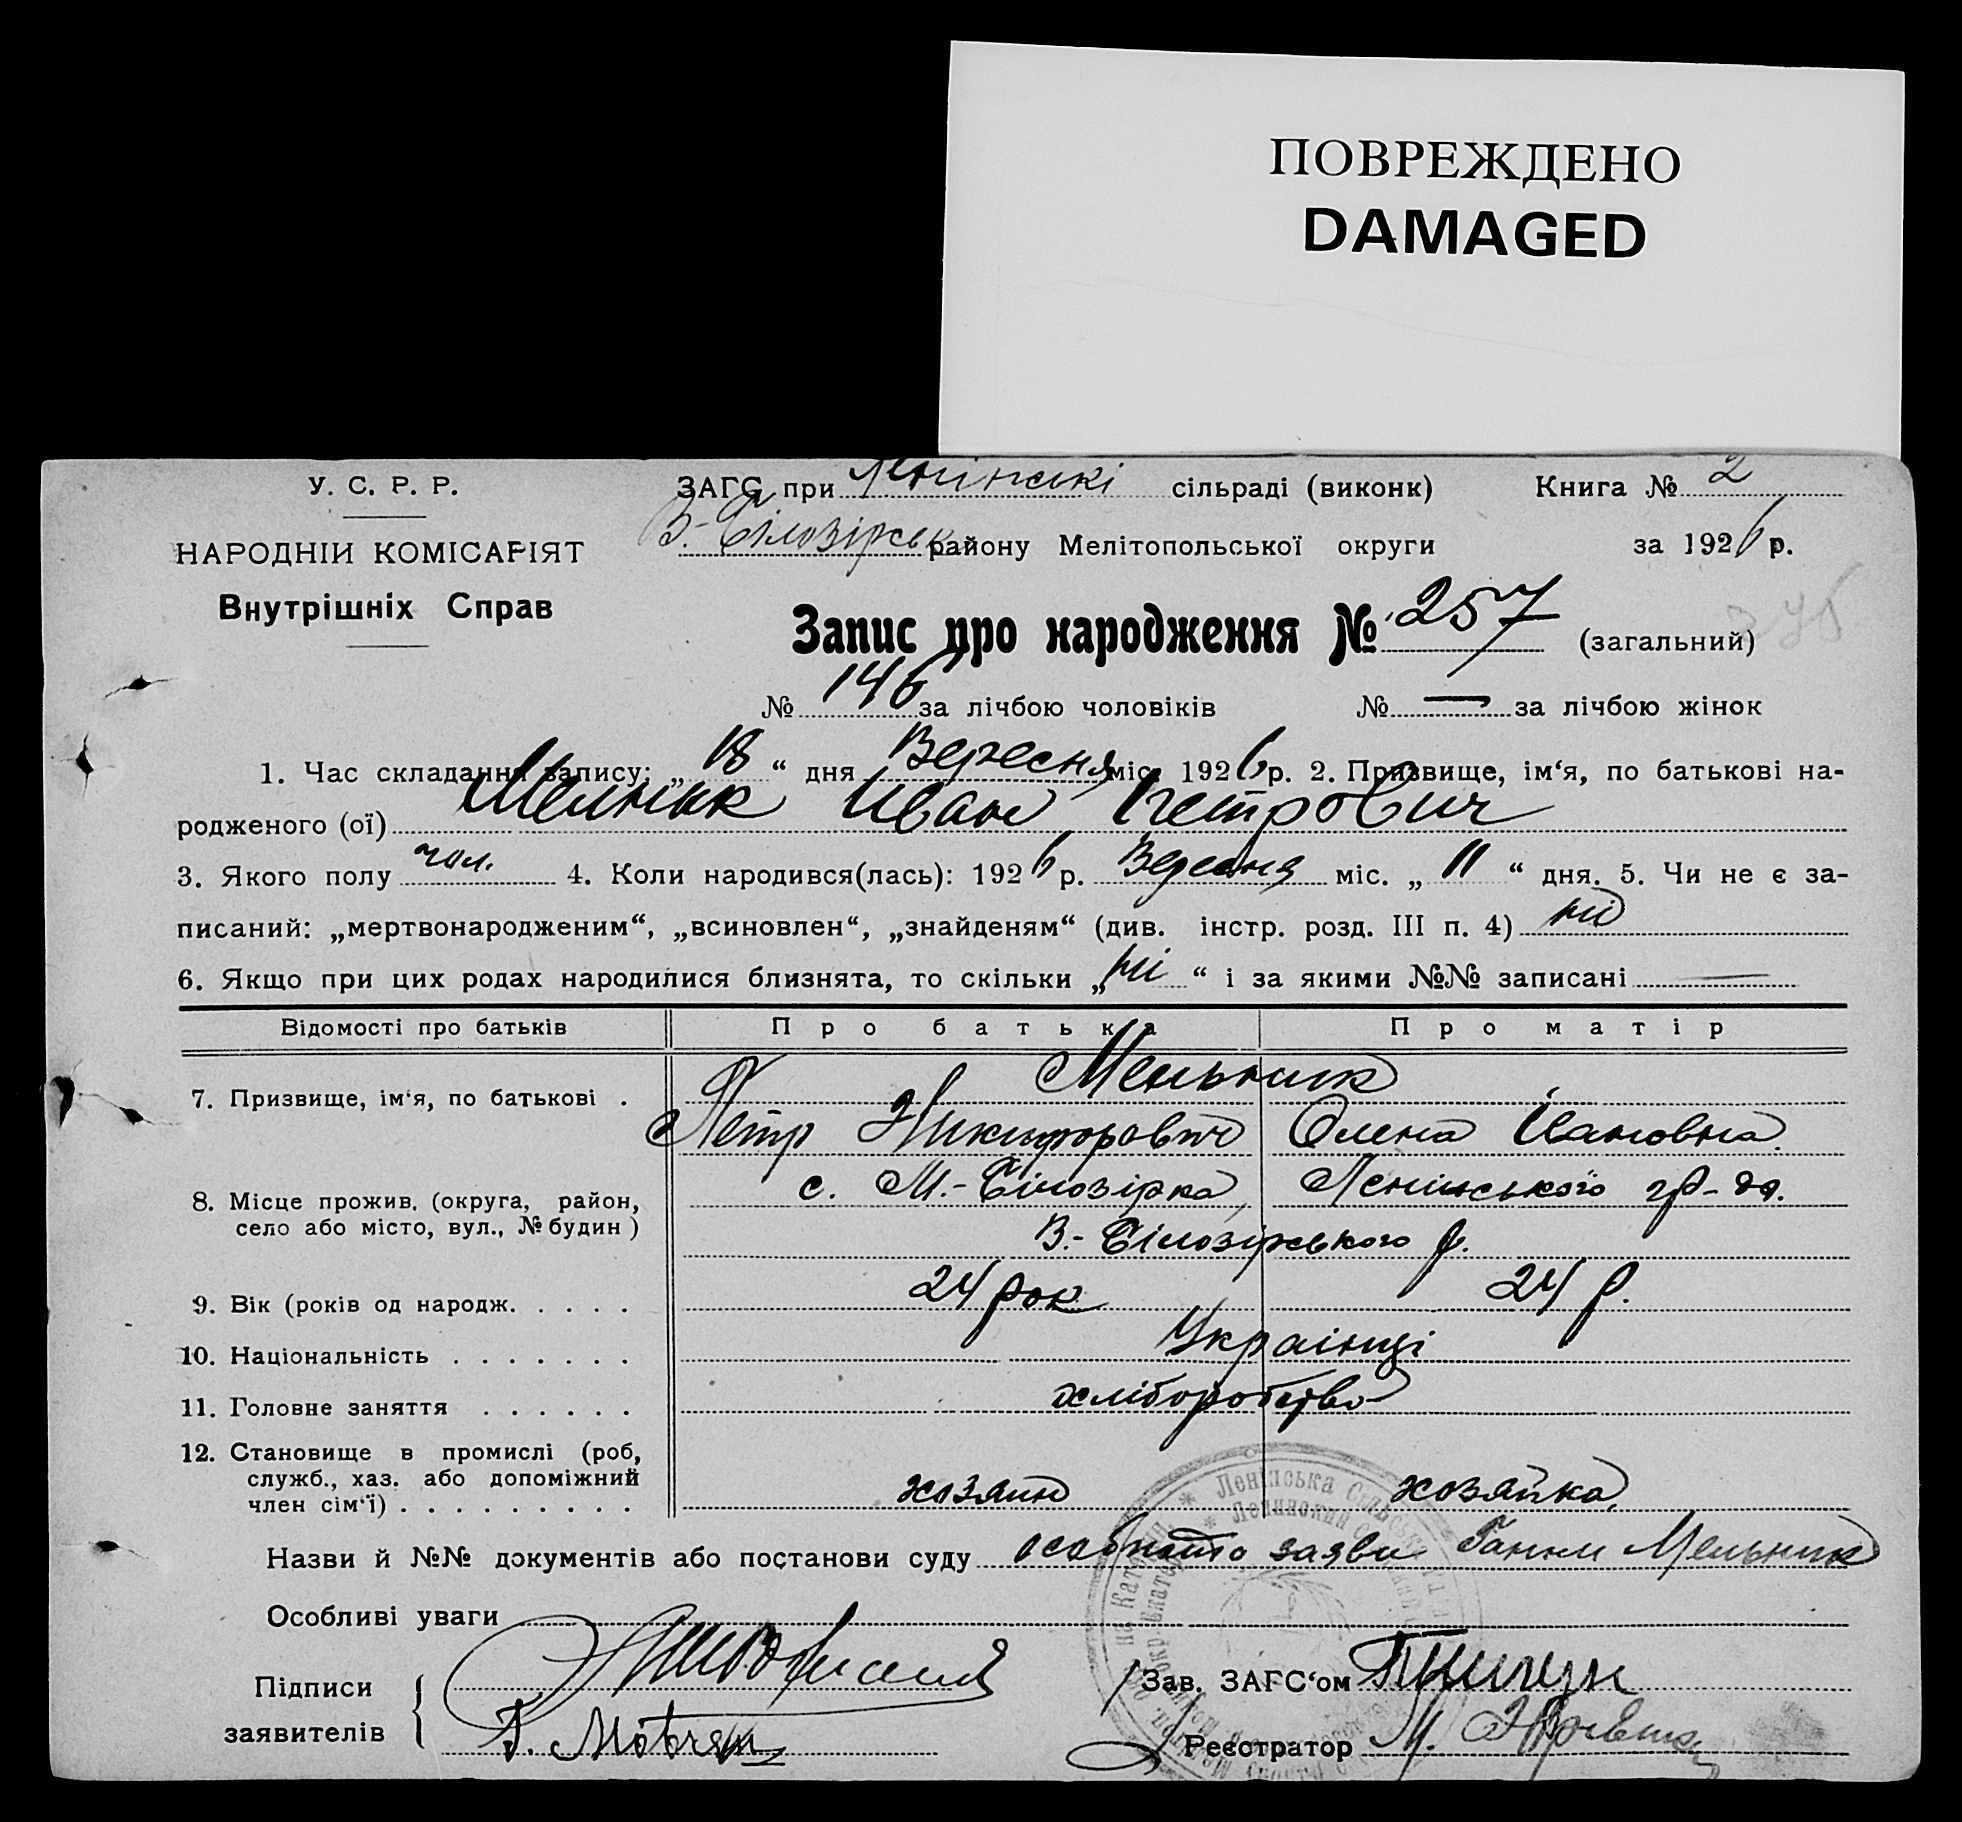 ПОВРЕЖДЕНО
DAMAGED
У. С. Р. Р.
ЗАГС при Ленінскі сільраді (виконк) Книга № 2
В.-Білозірськ району Мелітопольської округи за 1926 р.
НАРОДНІЙ КОМІСАРІЯТ
Внутрішніх Справ
Запис про народження № 257 (загальний)
№ 146 за лічбою чоловіків № — за лічбою жінок
1. Час складання запису: „ 18 “ дня Вересня міс. 1926 р. 2. Призвище, ім‘я, по батькові на-
родженого (ої) Мелник Иван Петрович
3. Якого полу чол. 4. Коли народився(лась): 1926 р. Вересня міс. „ 11 “ дня. 5. Чи не є за-
писаний: „мертвонародженим“, „всиновлен“, „знайденям“ (див. інстр. розд. III п. 4) ні
6. Якщо при цих родах народилися близнята, то скільки „ ні “ і за якими №№ записані —
Відомості про батьків Про батька Про матір
7. Призвище, ім‘я, по батькові . Мельник
Петр Никифорович Олена Івановна
8. Місце прожив. (округа, район, с. М.-Білозірка, Ленінського
село або місто, вул., № будин ) В.-Білозірського р.
9. Вік (років од народж. . . . . 24 рок 24 р.
10. Національність . . . . . . . Українці
11. Головне заняття . . . . . . хліборобство
12. Становище в промислі (роб,
служб., хаз. або допоміжний
член сім‘ї) . . . . . . . . . хозяин хозяйка
Назви й №№ документів або постанови суду заяви Ганни Мельник
Особливі уваги
Підписи
заявителів
Зав. ЗАГС‘ом
Реєстратор М.